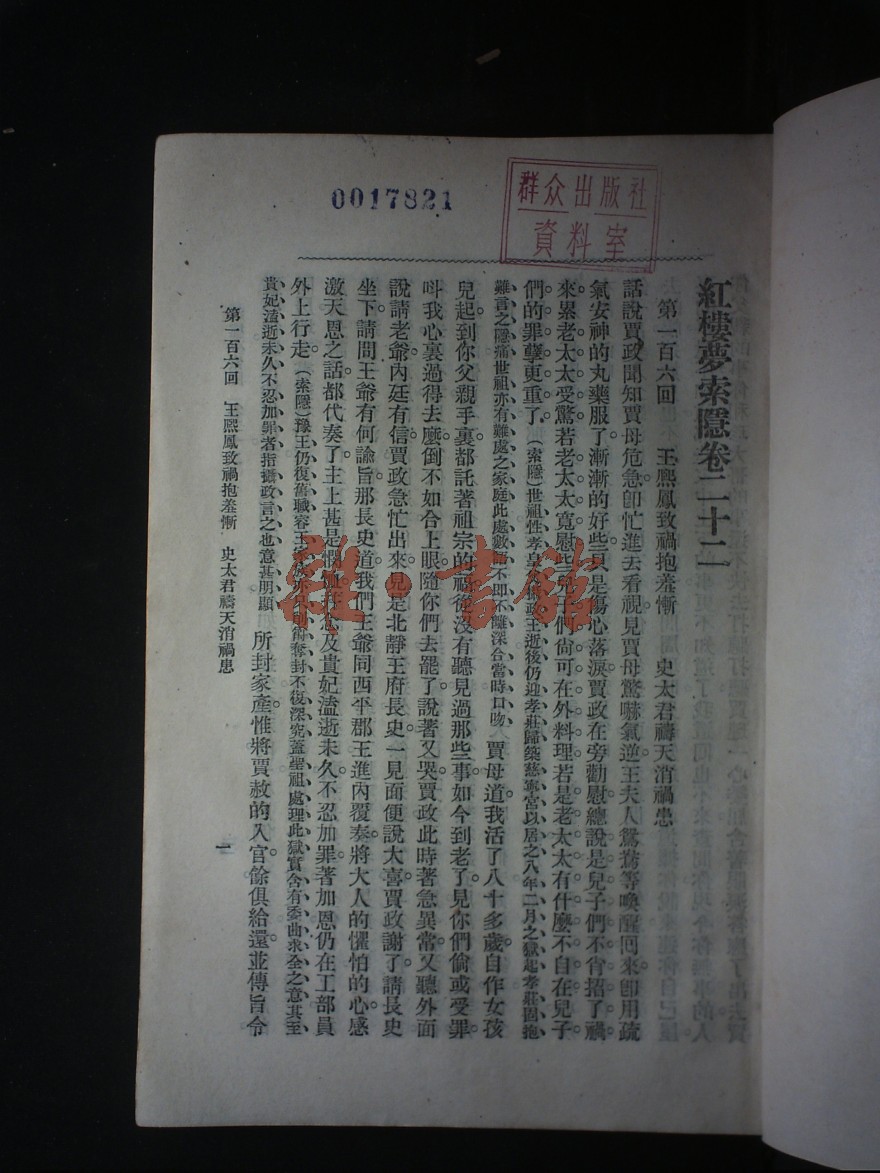 0017821
群众出版社
資料室
紅樓夢索隱卷二十二
第一百六回 王熙鳳致禍抱羞慚 史太君禱天消禍患
話說賈政聞知賈母危急卽忙進去看視見賈母驚嚇氣逆王夫人鴛鴦等喚醒回來卽用疏
氣安神的丸藥服了漸漸的好些只是傷心落淚賈政在旁勸慰總說是兒子們不肖招了禍
來累老太太受驚若老太太寬慰些兒子們尙可在外料理若是老太太有什麼不自在兒子
們的罪孽更重了(索隱)世祖性孝皇父攝政王逝後仍迎孝莊歸築慈寧宮以居之八年二月之獄起孝莊固抱
難言之隱痛世祖亦有難處之家庭此處數語不卽不離深合當時口吻 賈母道我活了八十多歲自作女孩
兒起到你父親手裏都託著祖宗的福從沒有聽見過那些事如今到老了見你們倘或受罪
叫我心裏過得去麼倒不如合上眼隨你們去罷了說著又哭賈政此時著急異常又聽外面
說請老爺內廷有信賈政急忙出來見是北靜王府長史一見面便說大喜賈政謝了請長史
坐下請問王爺有何諭旨那長史道我們王爺同西平郡王進內覆奏將大人的懼怕的心感
激天恩之話都代奏了主上甚是憫恤并念及貴妃溘逝未久不忍加罪著加恩仍在工部員
外上行走(索隱)豫王仍復舊職容王家族亦只削爵奪封不復深究蓋聖祖處理此獄實含有委曲求全之意其至
貴妃溘逝未久不忍加罪者指攝政言之也意甚明顯 所封家產惟將賈赦的入官餘俱給還並傳旨令
第一百六回 王熙鳳致禍抱羞慚 史太君禱天消禍患
一
雜·書館